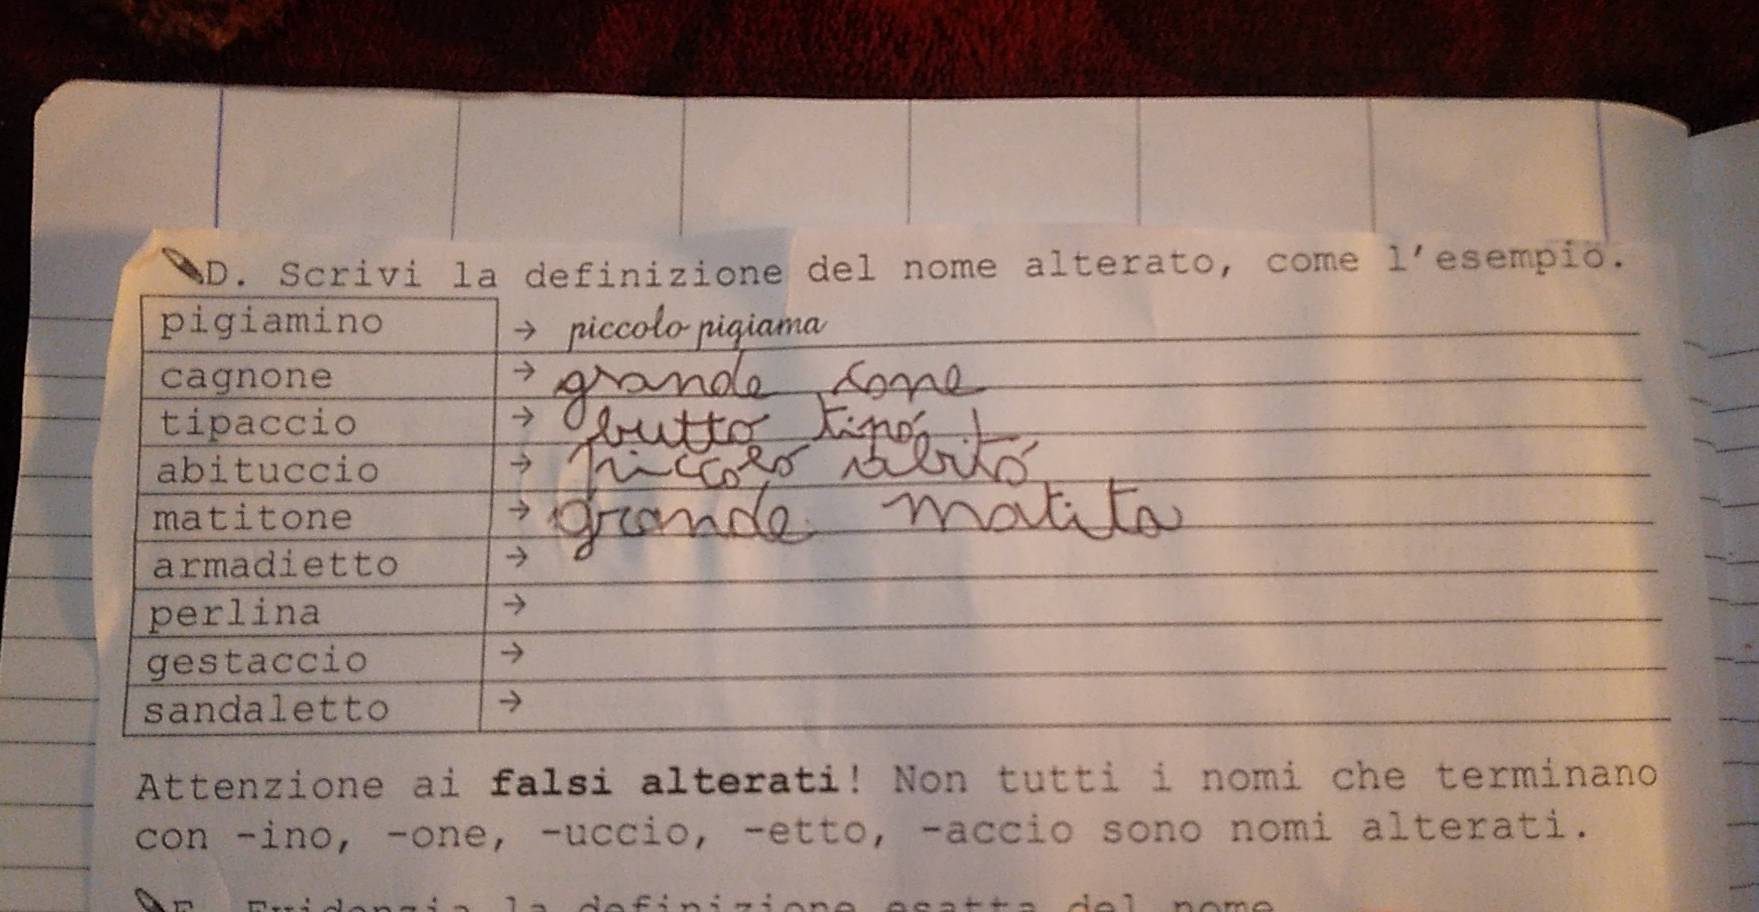 D. Scrivi la definizione del nome alterato, come l'esempio.
pigiamino → piccolo pigiama
cagnone → grande cane
tipaccio → butto tipo
abituccio → piccolo abito
matitone → grande matita
armadietto →
perlina →
gestaccio →
sandaletto →
Attenzione ai falsi alterati! Non tutti i nomi che terminano
con -ino, -one, -uccio, -etto, -accio sono nomi alterati.
E. Evidenzia la definizione esatta del nome